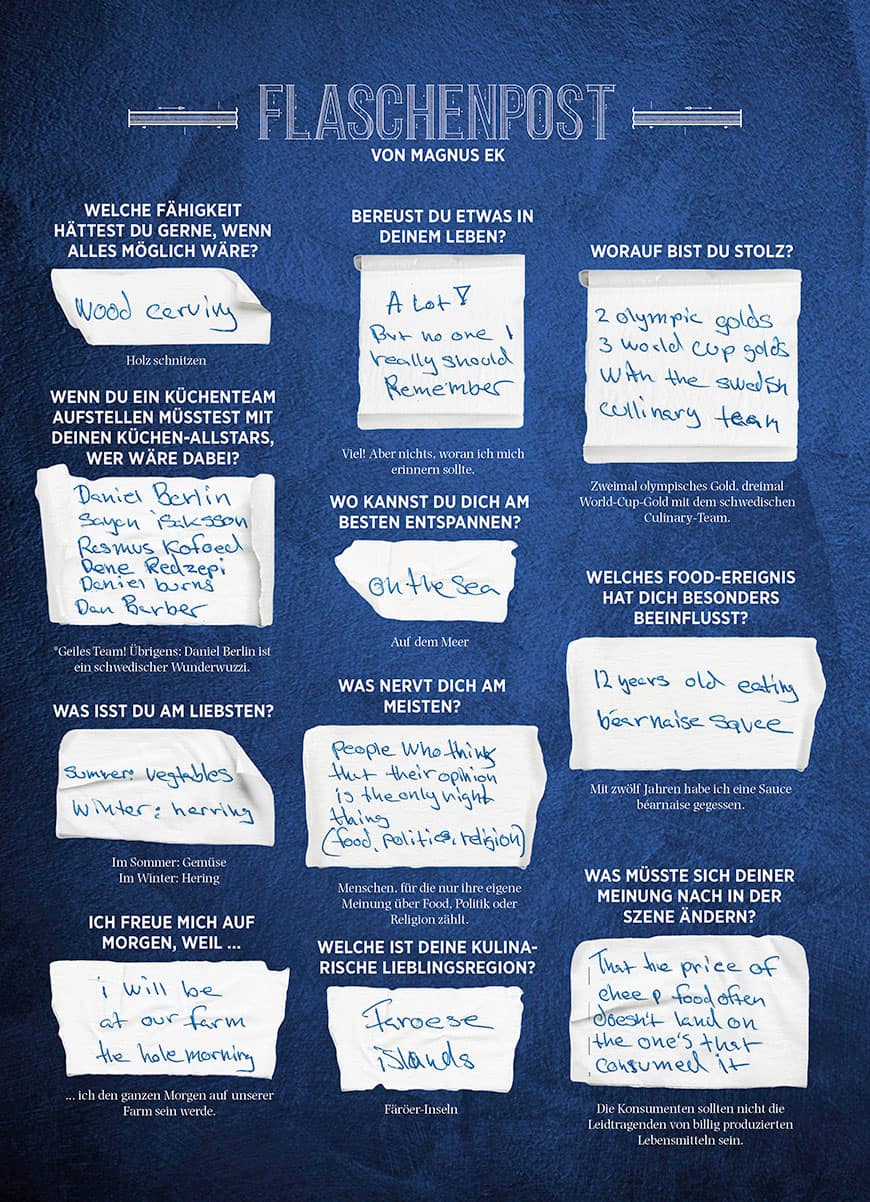 FLASCHENPOST
VON MAGNUS EK
WELCHE FÄHIGKEIT
HÄTTEST DU GERNE, WENN
ALLES MÖGLICH WÄRE?
Wood carving
Holz schnitzen
WENN DU EIN KÜCHENTEAM
AUFSTELLEN MÜSSTEST MIT
DEINEN KÜCHEN-ALLSTARS,
WER WÄRE DABEI?
Daniel Berlin
Sayan isaksson
Rasmus Kofoed
Rene Redzepi
Daniel burns
Dan Barber
*Geiles Team! Übrigens: Daniel Berlin ist
ein schwedischer Wunderwuzzi.
WAS ISST DU AM LIEBSTEN?
Summer: vegtables
Winter: herring
Im Sommer: Gemüse
Im Winter: Hering
ICH FREUE MICH AUF
MORGEN, WEIL ...
i will be
at our farm
the hole morning
... ich den ganzen Morgen auf unserer
Farm sein werde.
BEREUST DU ETWAS IN
DEINEM LEBEN?
A Lot!
But no one I
really should
Remember
Viel! Aber nichts, woran ich mich
erinnern sollte.
WO KANNST DU DICH AM
BESTEN ENTSPANNEN?
on the sea
Auf dem Meer
WAS NERVT DICH AM
MEISTEN?
People who think
that their opinion
is the only right
thing
(food, politics, religion)
Menschen, für die nur ihre eigene
Meinung über Food, Politik oder
Religion zählt.
WELCHE IST DEINE KULINA-
RISCHE LIEBLINGSREGION?
Faroese
islands
Färöer-Inseln
WORAUF BIST DU STOLZ?
2 olympic golds
3 world cup golds
with the swedish
cullinary team
Zweimal olympisches Gold, dreimal
World-Cup-Gold mit dem schwedischen
Culinary-Team.
WELCHES FOOD-EREIGNIS
HAT DICH BESONDERS
BEEINFLUSST?
12 years old eating
béarnaise sauce
Mit zwölf Jahren habe ich eine Sauce
béarnaise gegessen.
WAS MÜSSTE SICH DEINER
MEINUNG NACH IN DER
SZENE ÄNDERN?
That the price of
cheep food often
doesn't land on
the one's that
consumed it
Die Konsumenten sollten nicht die
Leidtragenden von billig produzierten
Lebensmitteln sein.